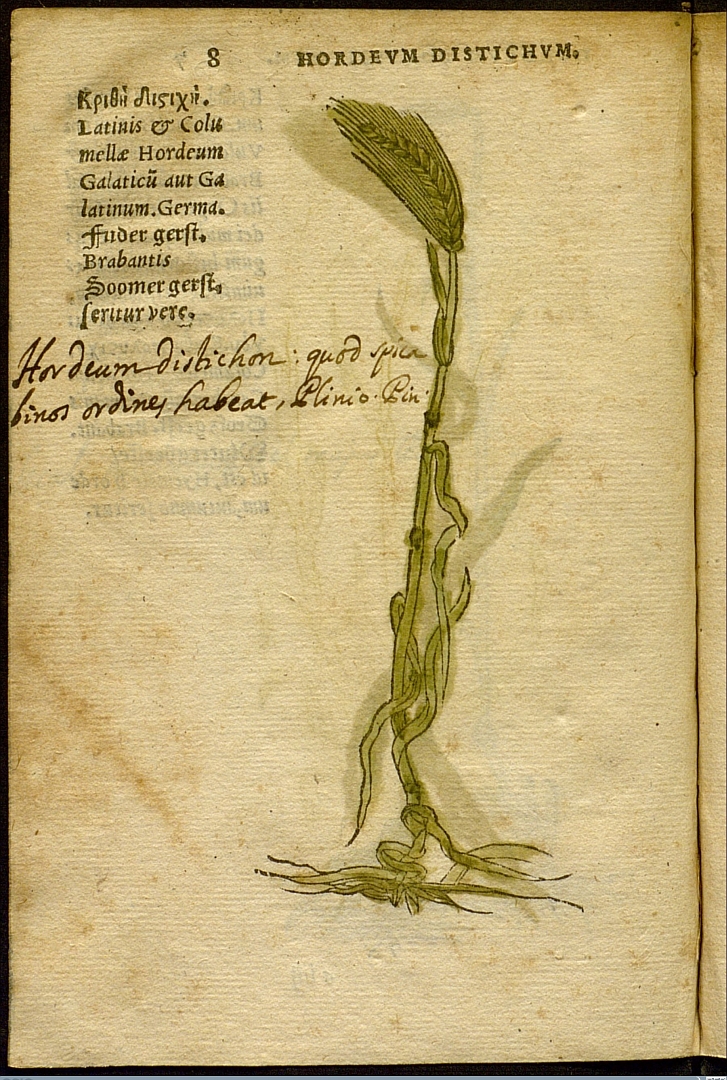 8 HORDEVM DISTICHVM.
Κριθὴ διϛιχὴ.
Latinis & Colu
mellæ Hordeum
Galaticũ aut Ga
latinum. Germa.
Fuder gerſt.
Brabantis
Soomer gerſt.
ſeritur vere.
Hordeum distichon: quod spica
binos ordines habeat, Plinio. Pin.